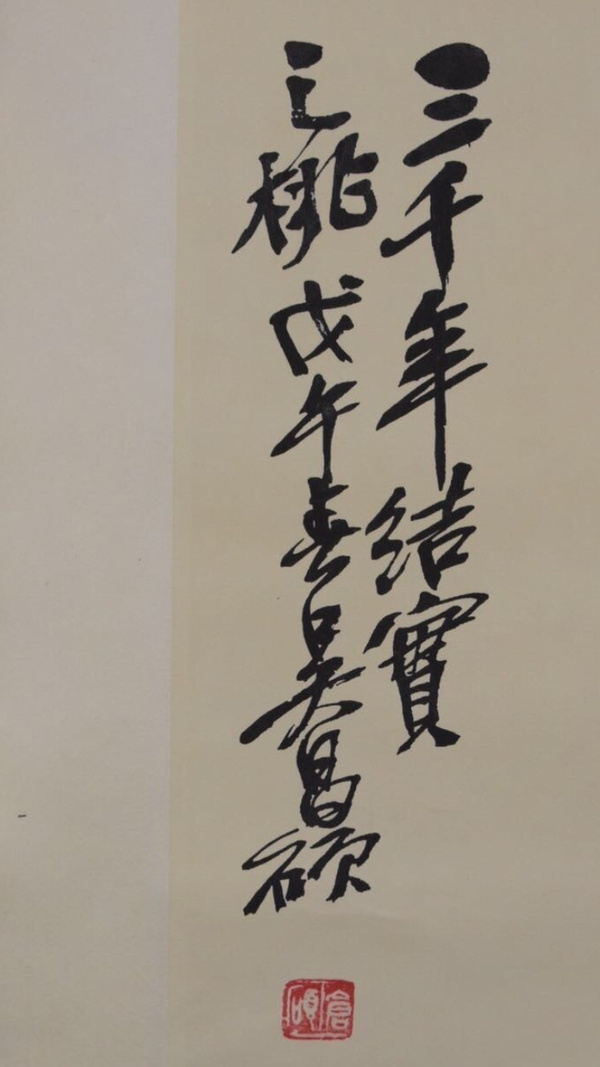 三千年結實
之桃戊午春吳昌碩
倉碩